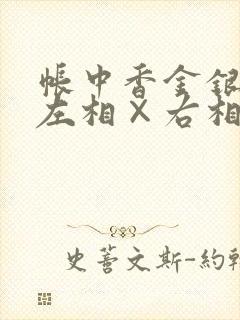 帳中香金銀
左相×右相
史蒈文斯-約翰